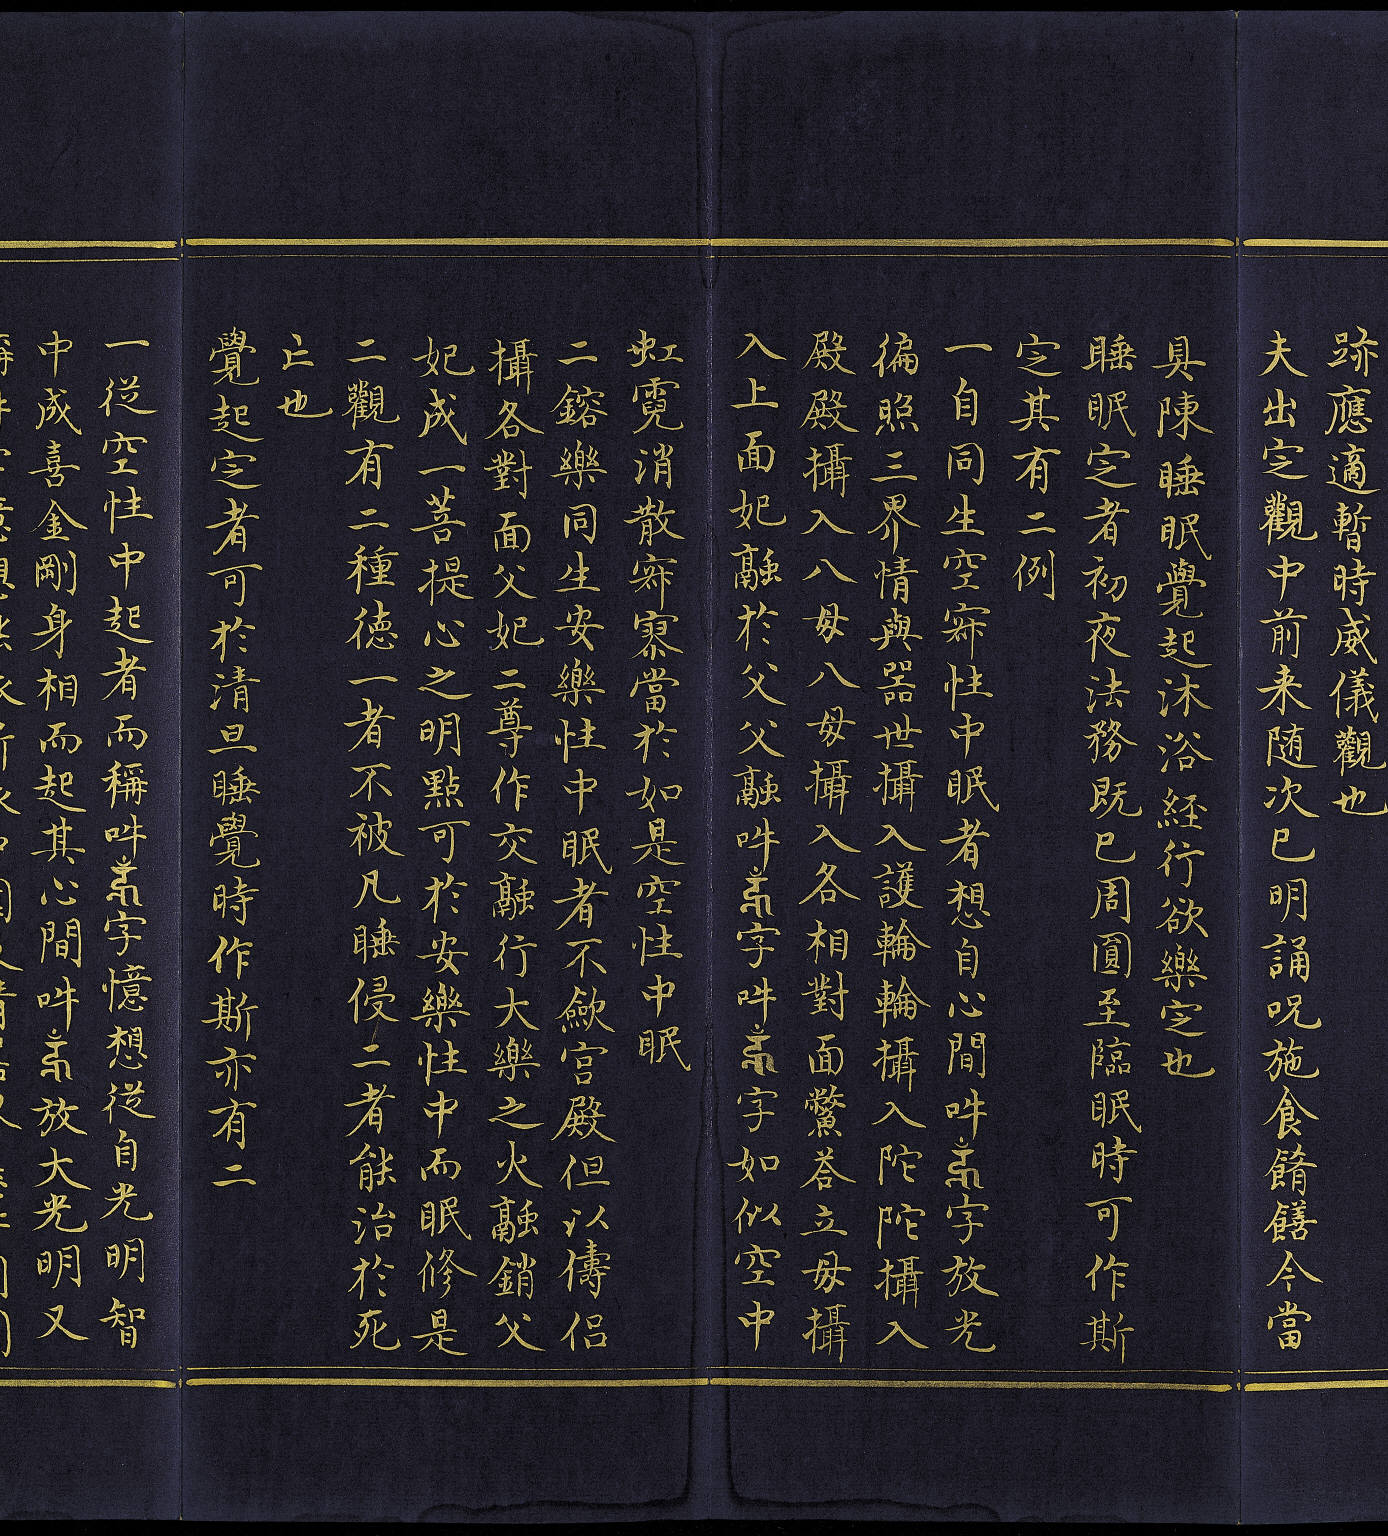 跡應適暫時威儀觀也
夫出㝎觀中前来随次已明誦呪施食餚饍今當
具陳睡眠覺起沐浴経行欲樂㝎也
睡眠㝎者初夜法務既已周圓至臨眠時可作斯
㝎其有二例
一自同生空寂性中眠者想自心間吽字放光
徧照三界情與器世攝入護輪輪攝入陀陀攝入
殿殿攝入八母八母攝入各相對面鱉荅立母攝
入上面妃融於父父融吽字吽字如似空中
虹霓消散寂寥當於如是空性中眠
二鎔樂同生安樂性中眠者不歛宫殿但以儔侣
攝各對面父妃二尊作交融行大樂之火融銷父
妃成一菩提心之明點可於安樂性中而眠修是
二觀有二種徳一者不被凡睡侵二者能治於死
亡也
覺起㝎者可於清旦睡覺時作斯亦有二
一従空性中起者而稱吽字憶想従自光明智
中成喜金剛身相而起其心間吽放大光明又